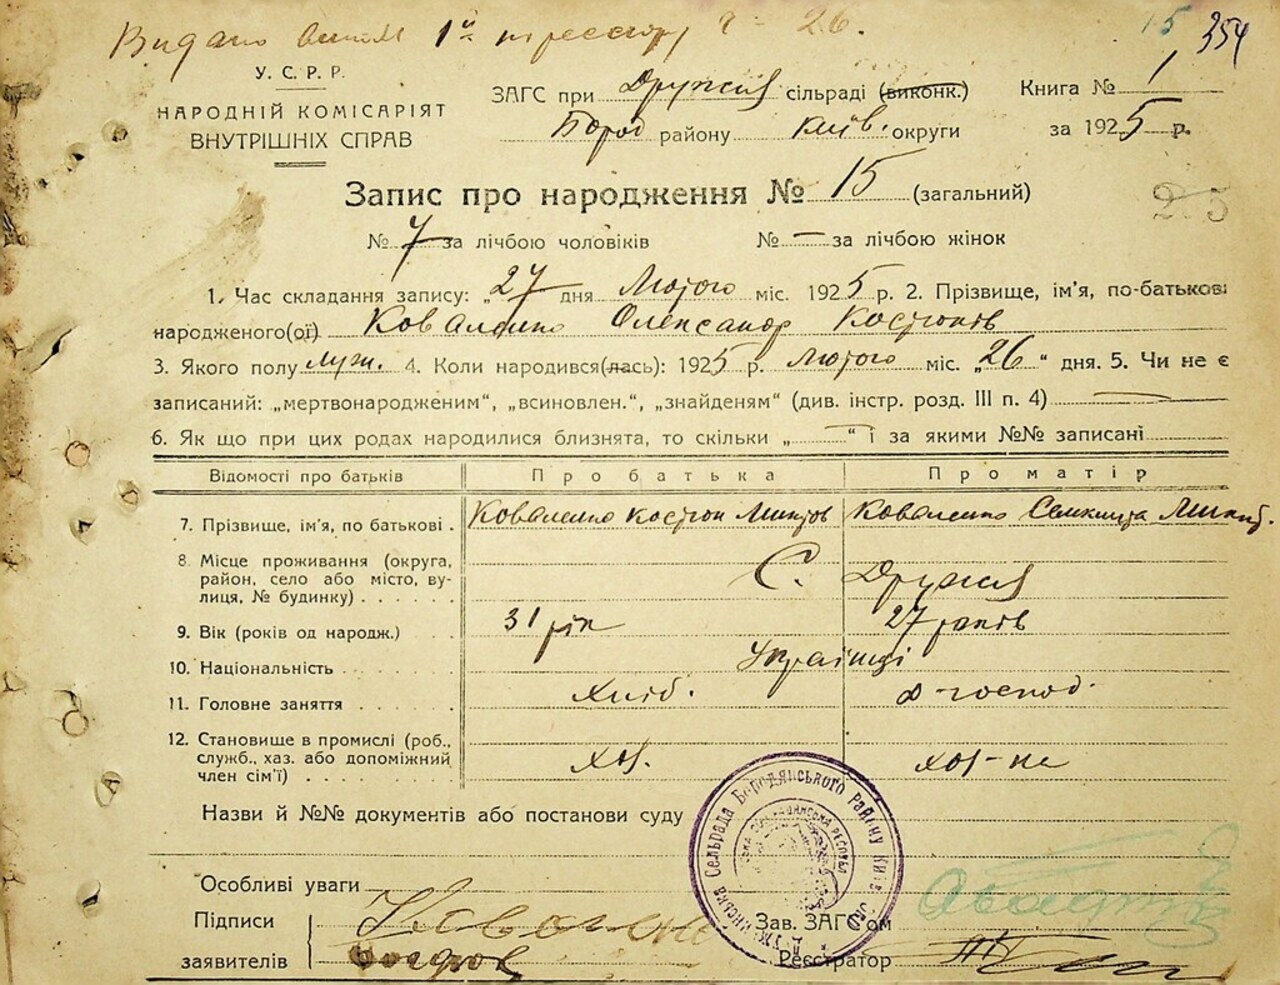 Видано 1й 26.
15 354
У. С. Р. Р.
НАРОДНІЙ КОМІСАРІЯТ
ВНУТРІШНІХ СПРАВ
ЗАГС при Дружня сільраді (виконк.) Книга № 1
Бород району Київ. округи за 1925 р.
Запис про народження № 15 (загальний)
25
№ 7 за лічбою чоловіків № — за лічбою жінок
1. Час складання запису: „27 дня Лютого міс. 1925 р. 2. Прізвище, ім'я, по-батькові
народженого(ої) Коваленко Олександр Костюнів
3. Якого полу муж. 4. Коли народився(лась): 1925 р. Лютого міс. „26“ дня. 5. Чи не є
записаний: „мертвонародженим“, „всиновлен.“, „знайденям“ (див. інстр. розд. III п. 4) —
6. Як що при цих родах народилися близнята, то скільки „—“ і за якими №№ записані
Відомості про батьків Про батька Про матір
7. Прізвище, ім'я, по батькові . Коваленко Костюн Коваленко
8. Місце проживання (округа,
район, село або місто, ву-
лиця, № будинку) . . . . . . С. Дружня
9. Вік (років од народж.) . . 31 рік 27 років
10. Національність . . . . . Українці
11. Головне заняття . . . . . . Хліб. д-господ.
12. Становище в промислі (роб.,
служб., хаз. або допоміжний
член сім'ї) . . . . . . . . хоз. хоз-на
Назви й №№ документів або постанови суду
Особливі уваги
Підписи
заявителів
Коваленко
Зав. ЗАГС'ом
Реєстратор
Сельрада Бородянського Району Київ